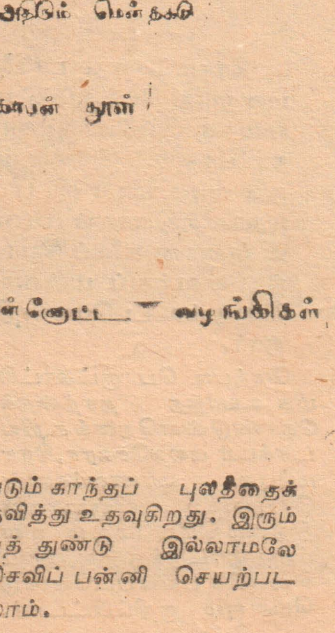 அதிரும் மென்தகடு
காபன் தூள்
ன்னோட்ட வழங்கிகள்
டும் காந்தப் புலத்தைக்
தவித்து உதவுகிறது. இரும்
த் துண்டு இல்லாமலே
சவிப் பன்னி செயற்பட
லாம்.